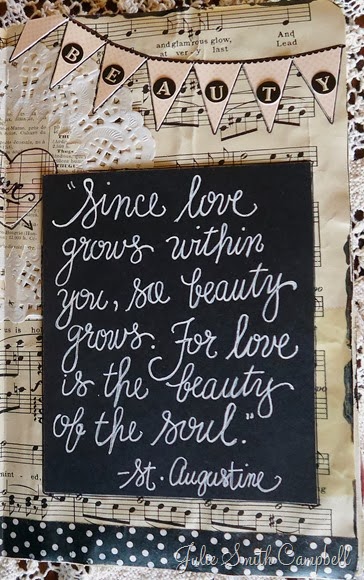 and glam'rous glow,
at very last
And
Lead
BEAUTY
"Since love
grows within
you, so beauty
grows. For love
is the beauty
of the soul."
-St. Augustine
Julie Smith Campbell